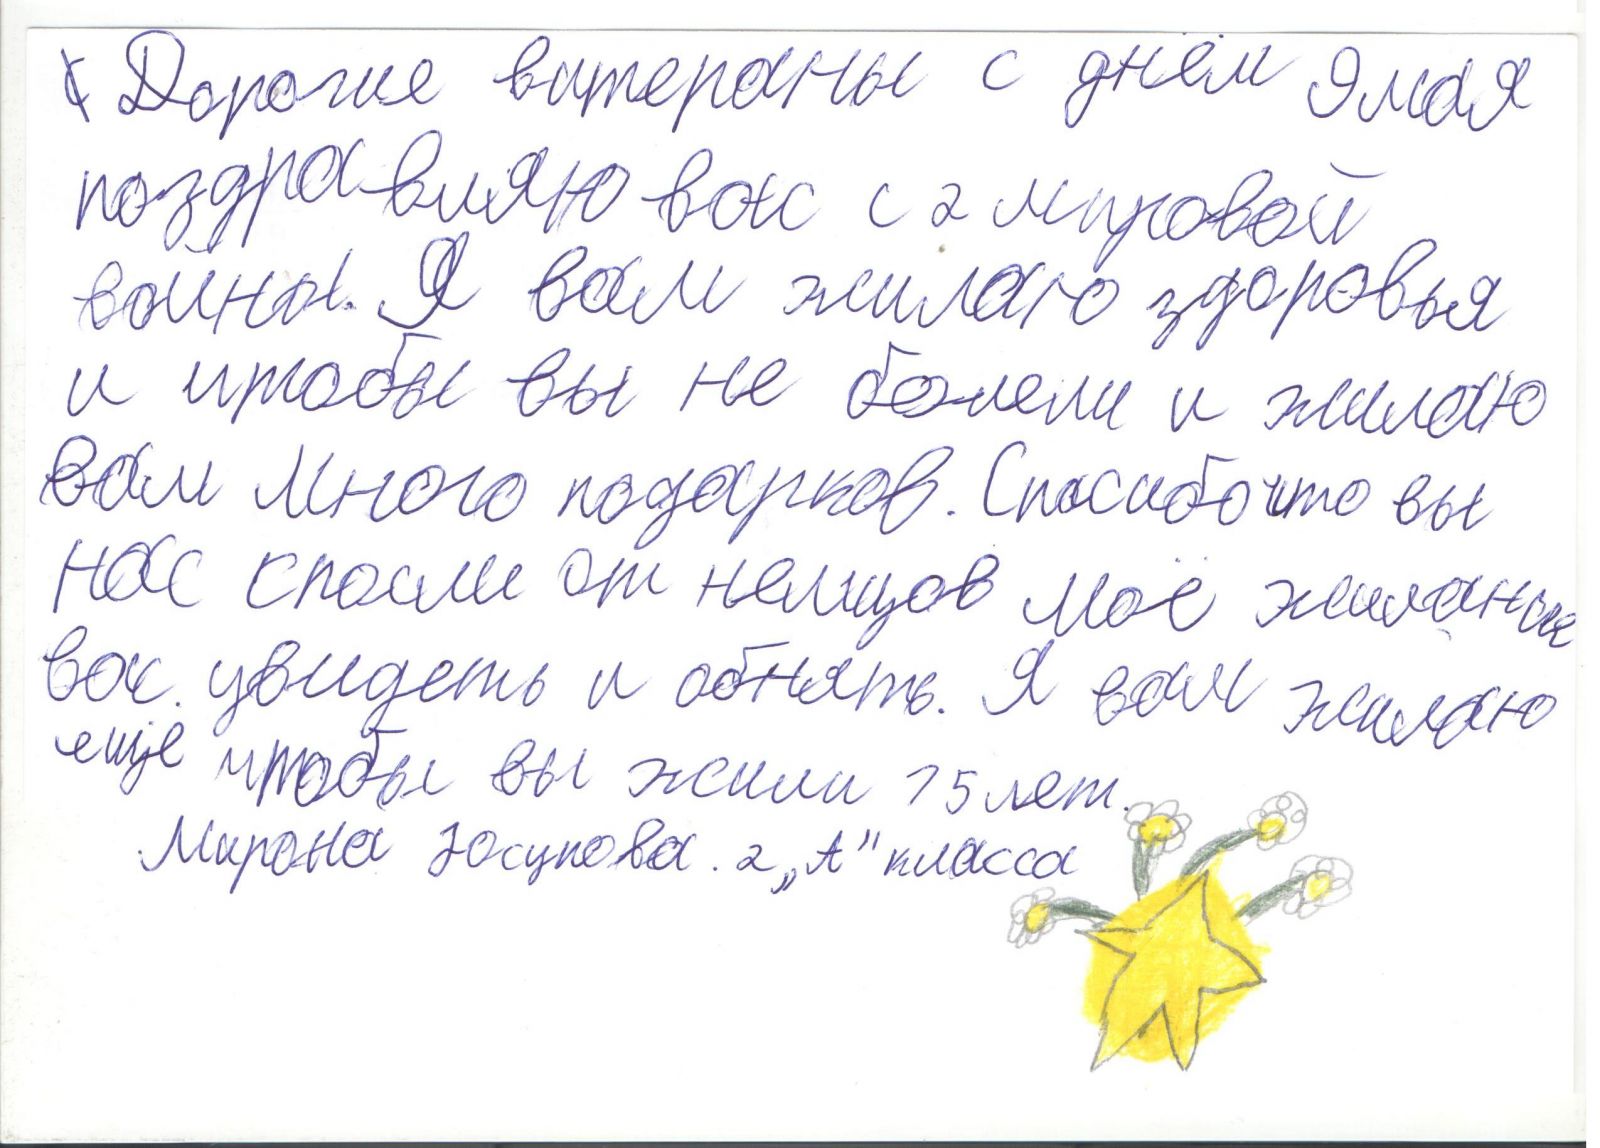 Дорогие витераны с днём 9 мая
поздравляю вас с 2 мировой
войны. Я вам жилаю здоровья
и чтобы вы не болели и жилаю
вам много подарков. Спасибо что вы
нас спасли от немцов моё жилание
вас увидеть и обнять. Я вам жилаю
еще чтобы вы жили 15 лет.
Мирона Юсупова. 2 „А" класса